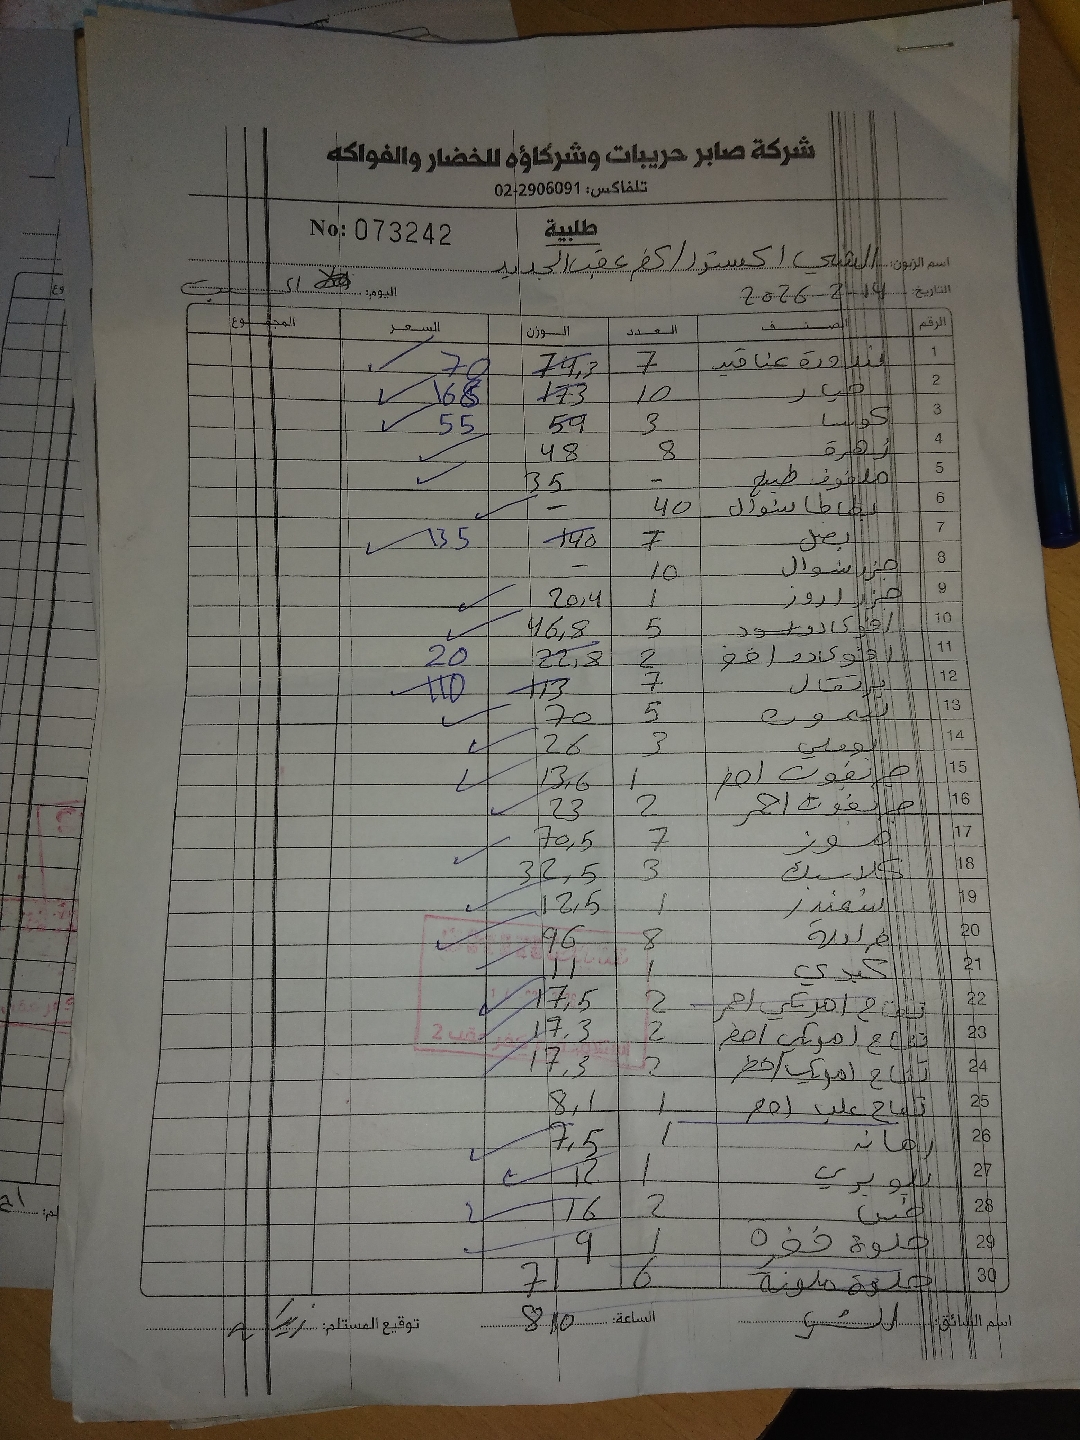 شركة صابر حريبات وشركاؤه للخضار والفواكه
تلفاكس: 02-2906091
No: 073242
طلبية
اسم الزبون: الشني اكسترا / كفر عقب الجديد
التاريخ: 14-2-2026 اليوم:
الرقم الصنف العدد الوزن السعر المجموع
1 بندورة عناقيد 7 74,3 70
2 خيار 10 173 168
3 كوسا 3 59 55
4 زهرة 8 48
5 ملفوف طبيخ - 35
6 بطاطا شوال 40 -
7 بصل 7 140 135
8 جزر شوال 10 -
9 جزر 1 20,4
10 افوكادو اسود 5 46,8
11 افوكادو اخضر 2 22,8 20
12 برتقال 7 113 110
13 5 70
14 بوملي 3 26
15 جريفوت 1 13,6
16 جريفوت احمر 2 23
17 موز 7 70,5
18 كلاسيك 3 32,5
19 شمندر 1 12,5
20 8 96
21 1 11
22 تفاح امريكي احمر 2 17,5
23 تفاح امريكي اصفر 2 17,3
24 تفاح امريكي اخضر 2 17,3
25 تفاح علب 1 8,1
26 1 7,5
27 1 12
28 خس 2 16
29 حلوة خضرة 1 9
30 حلوة ملونة 6 71
اسم السائق: الساعة: 8:10 توقيع المستلم: